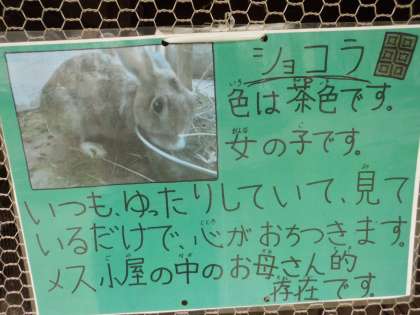 ショコラ
色は茶色です。
女の子です。
いつも、ゆったりしていて、見て
いるだけで、心がおちつきます。
メス小屋の中のお母さん的
存在です。